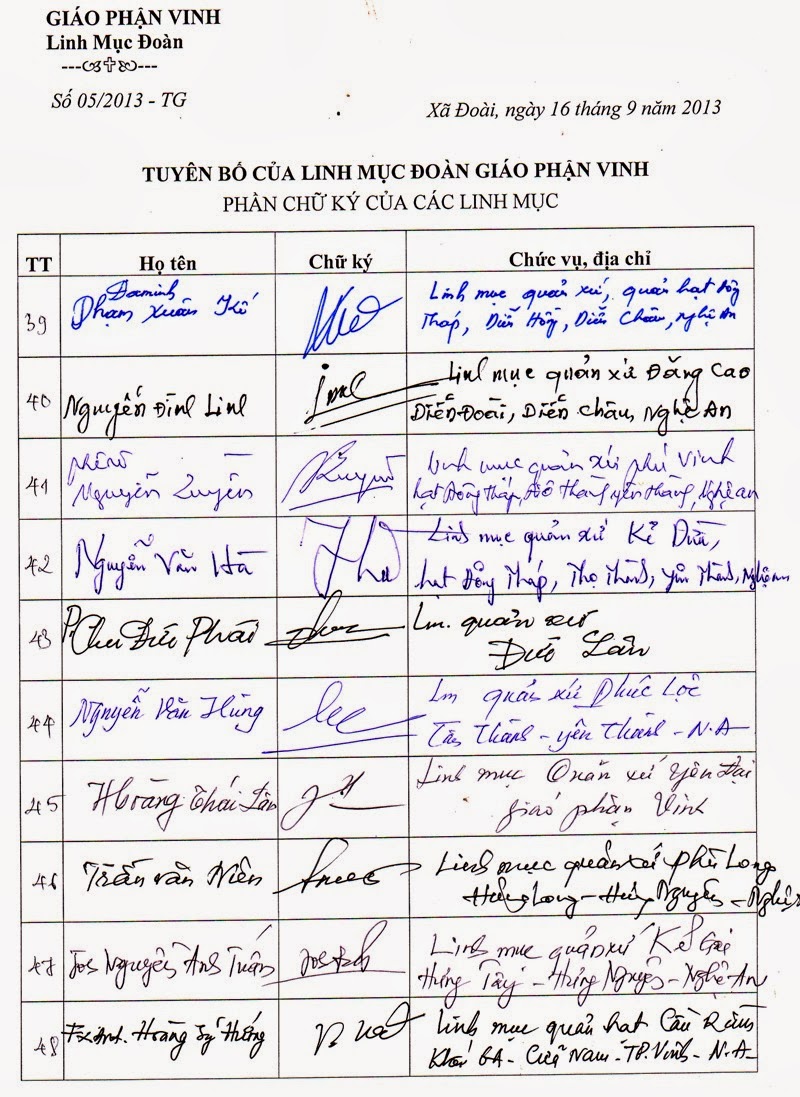 GIÁO PHẬN VINH
Linh Mục Đoàn
Số 05/2013 - TG
Xã Đoài, ngày 16 tháng 9 năm 2013
TUYÊN BỐ CỦA LINH MỤC ĐOÀN GIÁO PHẬN VINH
PHẦN CHỮ KÝ CỦA CÁC LINH MỤC
TT Họ tên Chữ ký Chức vụ, địa chỉ
39 Đaminh Phạm Xuân Kế Linh mục quản xứ, quản hạt Đông
Tháp, Diễn Hồng, Diễn Châu, Nghệ An
40 Nguyễn Đình Linh Linh mục quản xứ Đăng Cao
Diễn Đoài, Diễn Châu, Nghệ An
41 Phêrô Nguyễn Xuyên Linh mục quản xứ phú Vinh
hạt Đông Tháp, Đô Thành, yên Thành, Nghệ an
42 Nguyễn Văn Hà Linh mục quản xứ Kẻ Dừa,
hạt Đông Tháp, Thọ Thành, yên Thành, Nghệ An
43 P. Chu Đức Phái Lm. quản xứ
Đức Lân
44 Nguyễn Văn Hùng Lm quản xứ Phúc Lộc
Thành - yên Thành - N.A
45 Hoàng Thái Lân Linh mục Quản xứ yên Đại
giáo phận Vinh
46 Trần văn Niên Linh mục quản xứ Phù Long
Hưng Long - Hưng Nguyên - Nghệ
47 Jos Nguyễn Anh Tuấn Joseph Linh mục quản xứ Kẻ Gai
Hưng Tây - Hưng Nguyên - Nghệ An
48 Fx. Ant. Hoàng Sỹ Hướng Linh mục quản hạt Cầu Rầm
Khối 6A - Cửa Nam - TP. Vinh - N.A